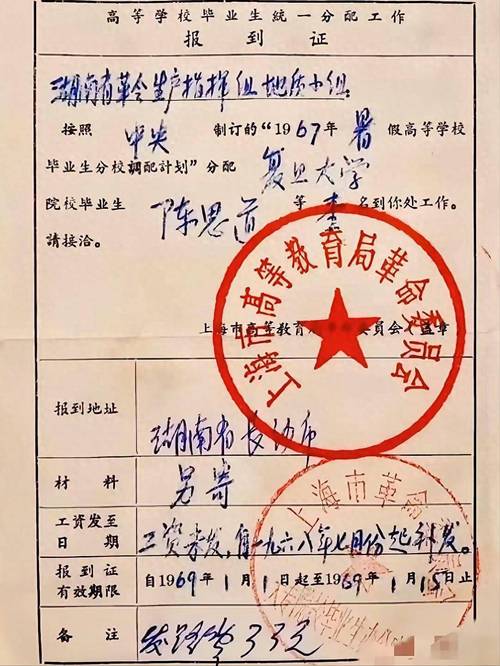 高等学校毕业生統一分配工作
报到证
湖南省革命生产指挥组地质小组
按照 中央 制订的“1967年 暑 假高等学校
毕业生分校調配計划”分配 复旦大学
院校毕业生 陈思道 等 壹 名到你处工作。
請接洽。
上海市高等教育局革命委员会(盖章
上海市高等教育局革命委员会
报到地址 湖南省长沙市
材料 另寄
上海市革命
工資发至日期 工资未发,自一九六八年七月份起补发。
报到证有效期限 自1969年1月1日起至1969年1月15日止
备注 发路费33元